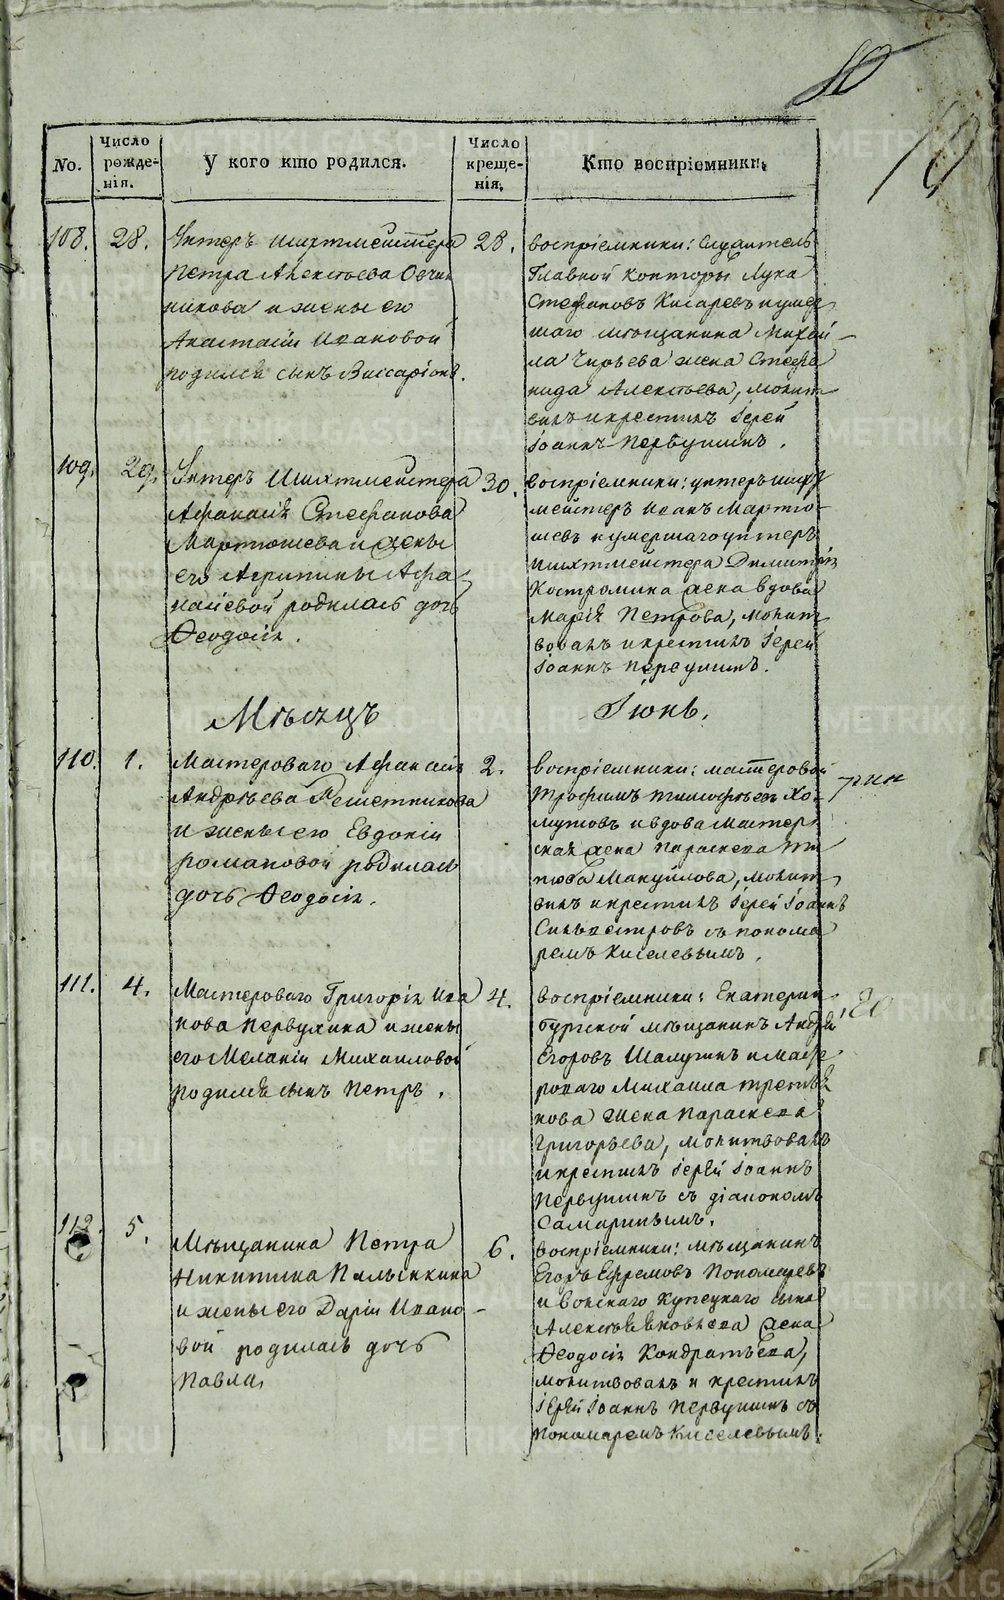 80
10
No.
Число рожде-нія.
У кого кто родился.
Число креще-нія.
Кто воспріемники.
108. 28.
Унтеръ шихтмейстера
Петра Алексѣева Овчин
никова и жены его
Анастасіи Ивановой
родился сынъ Виссаріонъ.
28.
воспріемники: служитель
Главной Конторы Лука
Стефановъ Кисаревъ и умер
шаго мѣщанина Михай-
ла Чирьева жена Стефа
нида Алексѣева, молит
вилъ и крестилъ Іерей
Іоаннъ Первушинъ.
109. 29.
Унтеръ Шихтмейстера
Афанасія Стефанова
Мартюшева и жены
его Агрипины Афа-
насіевой родилась дочь
Ѳеодосія.
30.
воспріемники: унтеръ шихт
мейстеръ Иванъ Мартю-
шевъ и умершаго унтеръ
шихтмейстера Димитрія
Костромина жена вдова
Марія Петрова, молит
вовалъ и крестилъ Іерей
Іоаннъ Первушинъ.
Мѣсяцъ Іюнь.
110. 1.
Мастероваго Афанасія
Андрѣева Решетникова
и жены его Евдокіи
Романовой родилась
дочь Ѳеодосія.
2.
воспріемники: мастеровой
Трофимъ Тимофѣевъ Хо-
мутовъ и вдова мастер
ская жена Параскева
Мануйлова, молит
вилъ и крестилъ Іерей Іоаннъ
Сильвестровъ съ понома
ремъ Киселевымъ.
111. 4.
Мастероваго Григорія Ива
нова Первухина и жены
его Меланіи Михаиловой
родился сынъ Петръ.
4.
воспріемники: Екатерин
бургской мѣщанинъ Андрей
Егоровъ Шалугинъ и масте
роваго Михаила Третья
кова жена Параскева
Григорьева, молитвовалъ
и крестилъ Іерей Іоаннъ
Первушинъ съ діакономъ
Самаринымъ.
112. 5.
Мѣщанина Петра
Никитина Пальчикина
и жены его Даріи Ивано-
вой родилась дочь
Павла.
6.
воспріемники: мѣщанинъ
Егоръ Ефремовъ Пономаревъ
и купецкаго сына
Алексѣя жена
Ѳеодосія Кондратьева,
молитвовалъ и крестилъ
Іерей Іоаннъ Первушинъ съ
пономаремъ Киселевымъ.
METRIKI.GASO-URAL.RU